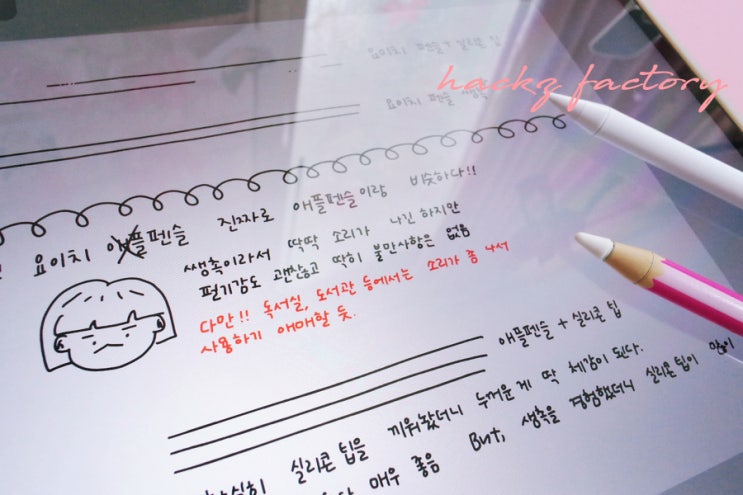 요이치 펜슬 + 실리콘 팁
hackz factory
요이치 펜슬 쌩촉
요이치 애플펜슬 진짜로 애플펜슬이랑 비슷하다!!
쌩촉이라서 딱딱 소리가 나긴 하지만
필기감도 괜찮고 딱히 불만사항은 없음
다만!! 독서실, 도서관 등에서는 소리가 좀 나서
사용하기 애매할 듯.
애플펜슬 + 실리콘 팁
확실히 실리콘 팁을 끼워놨더니 두꺼운게 딱 체감이 된다.
매우 좋음 But, 쌩촉을 경험했더니 실리콘팁이 많이